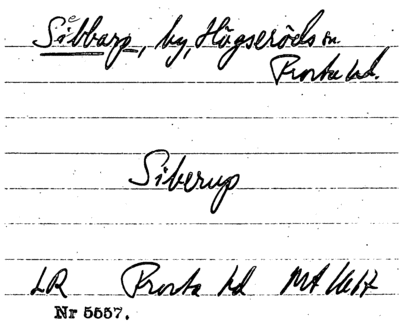 Sibbarp, by, Högseröds sn
Frosta hd.
Siberup
LR Frosta hd MA 1617
Nr 5557.